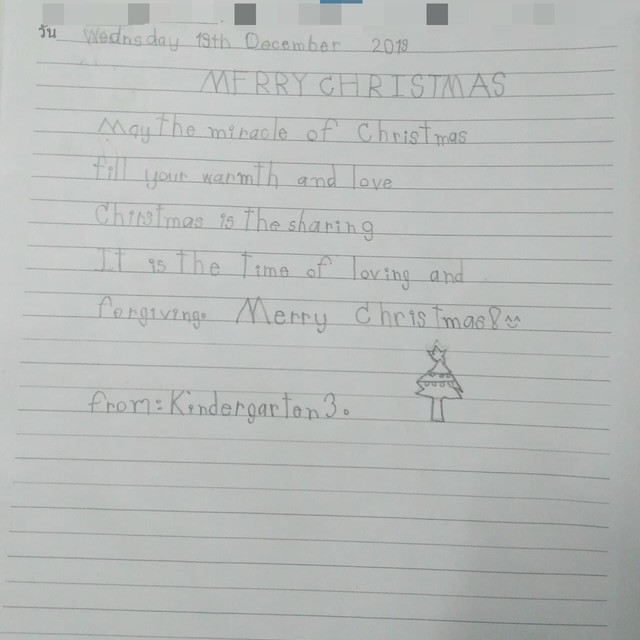 วัน Wednesday 19th December 2018
MERRY CHRISTMAS
May the miracle of Christmas
fill your warmth and love
Christmas is the sharing
It is the time of loving and
forgiving. Merry Christmas!
from: Kindergarten 3.